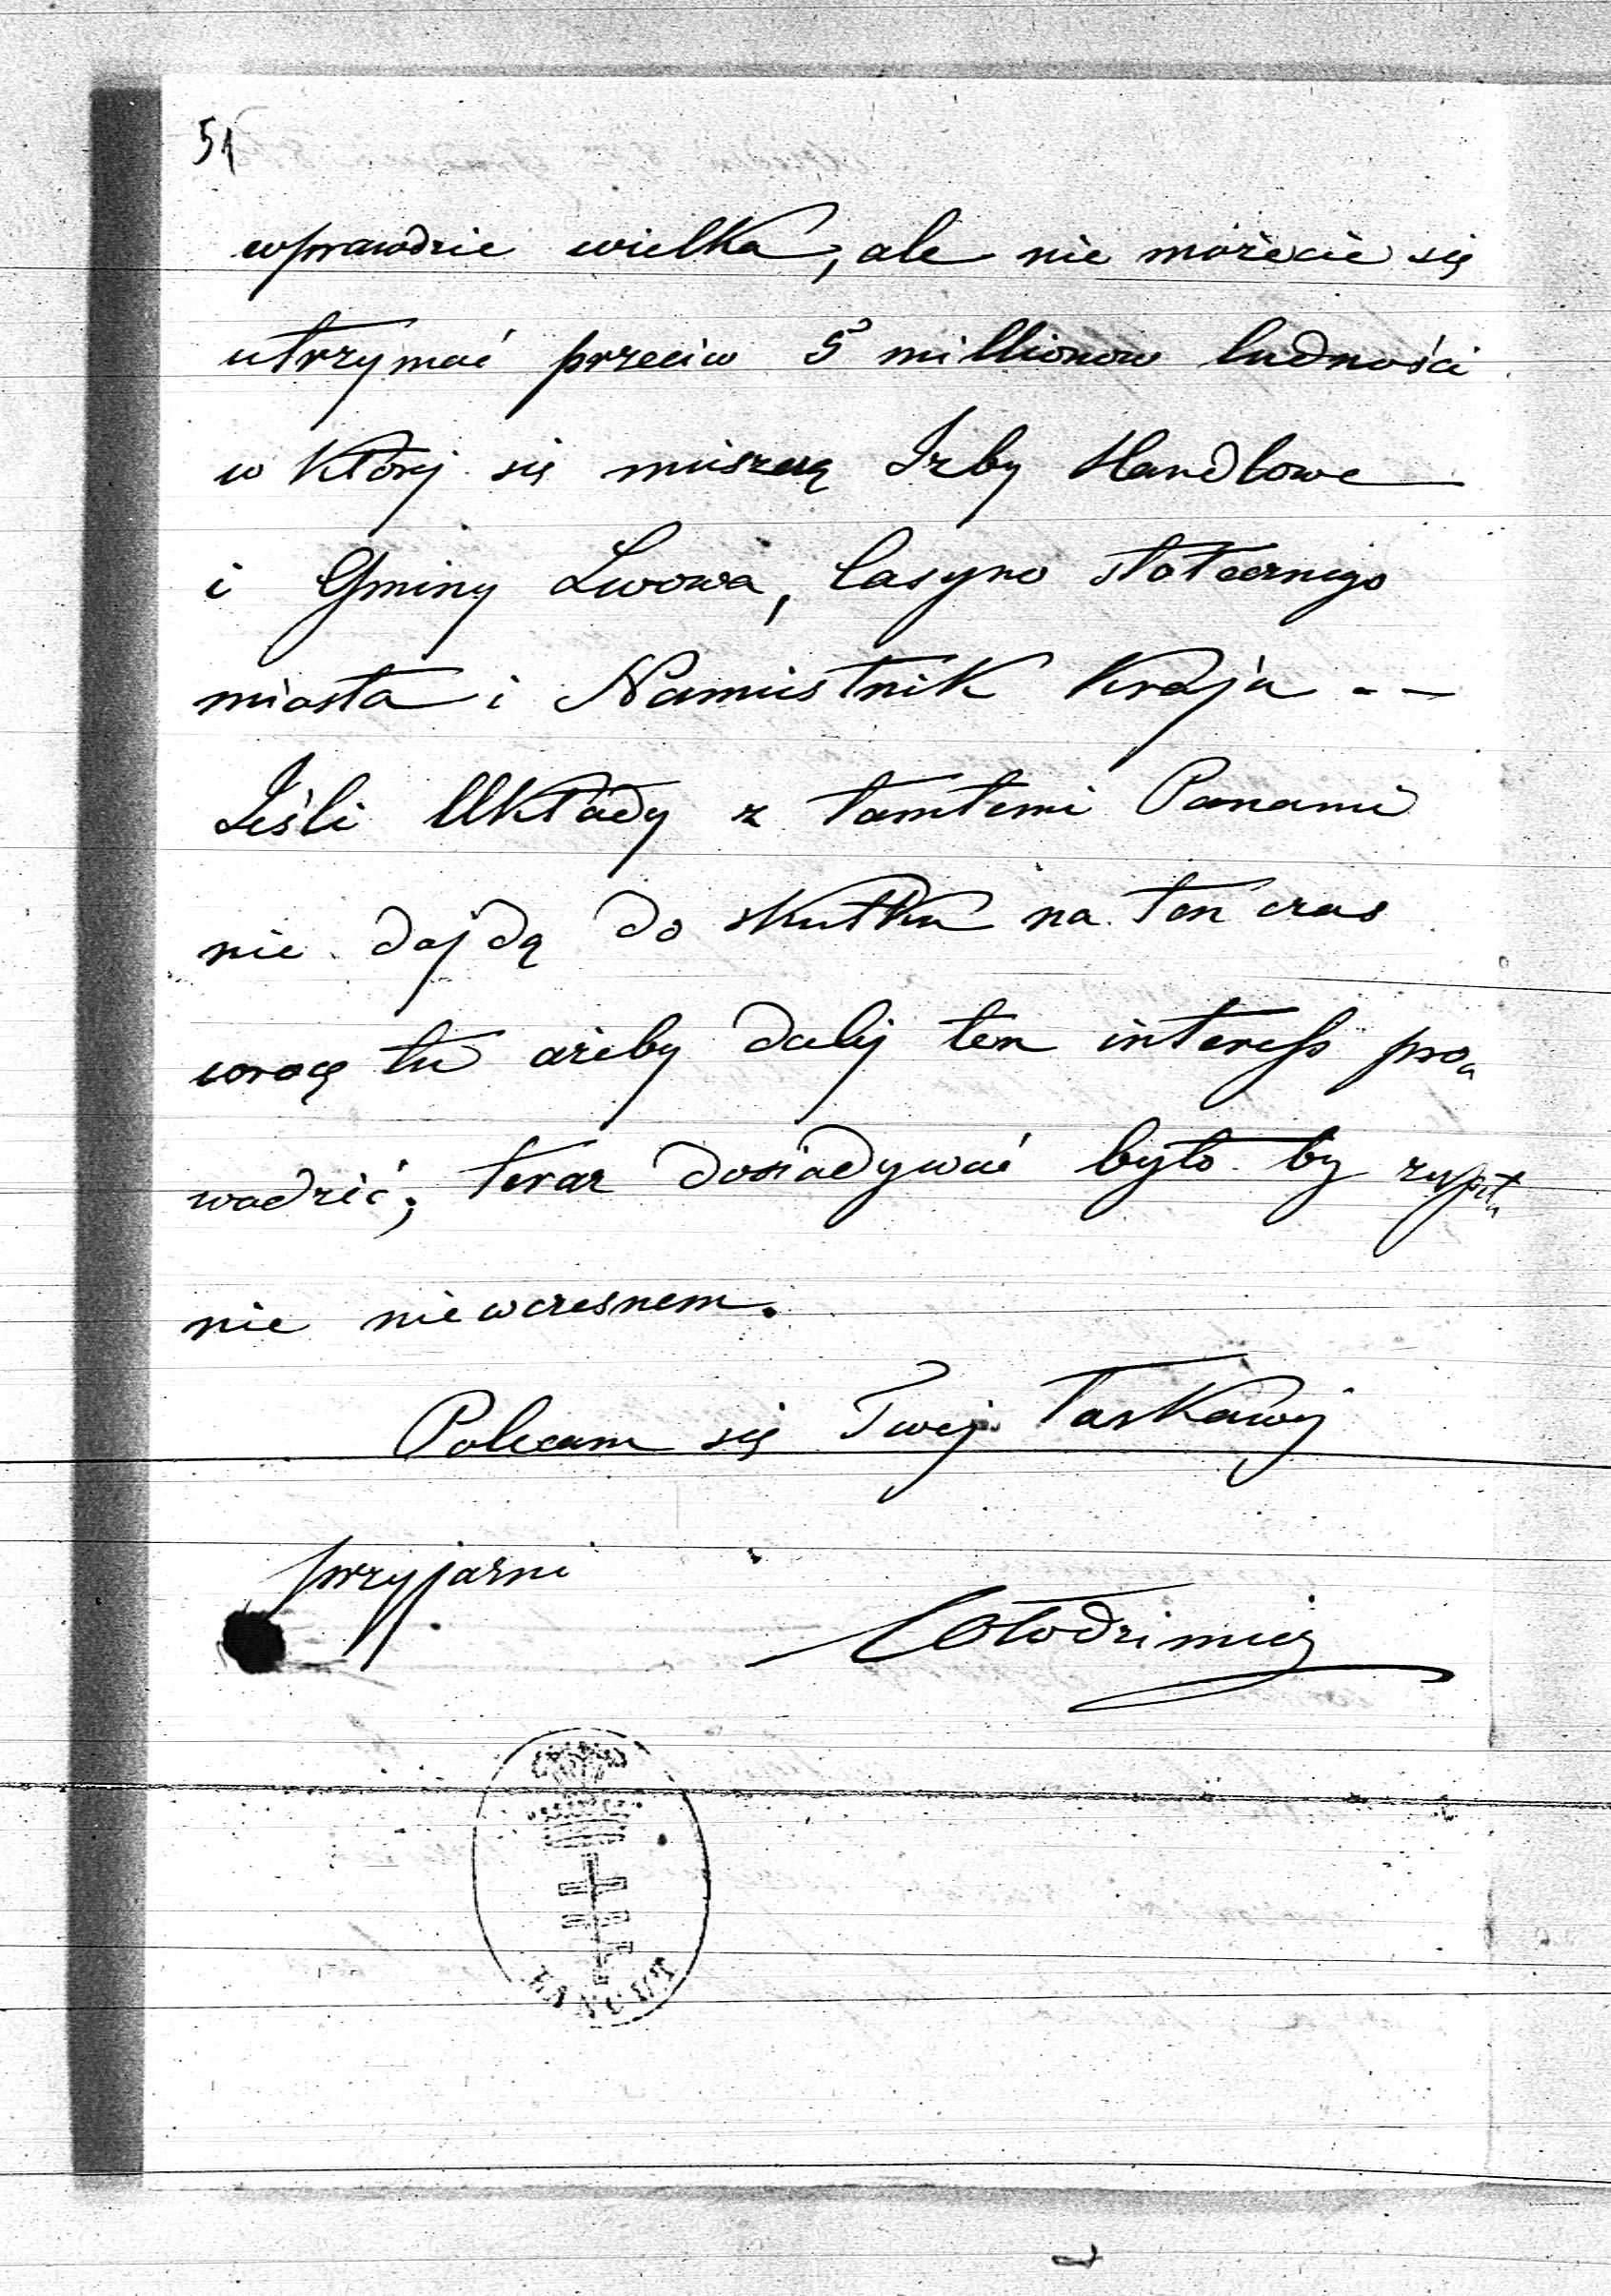 51
wprawdzie wielka, ale nie możecie się
utrzymać przeciw 5 millionow ludności
w Której się mieszczą Izby Handlowe
i Gminy Lwowa, Casyno stołecznego
miasta i Namiestnik Kraju --
Jeśli Układy z tamtemi Panami
nie dojdą do skutku na ten czas
wrócę tu ażeby dalej ten interess pro„
wadzić; teraz dosiadywać było by zupeł„
nie niewczesnem.
Polecam się Twej Łaskawej
przyjaźni
Włodzimierz
ŁAŃCUT